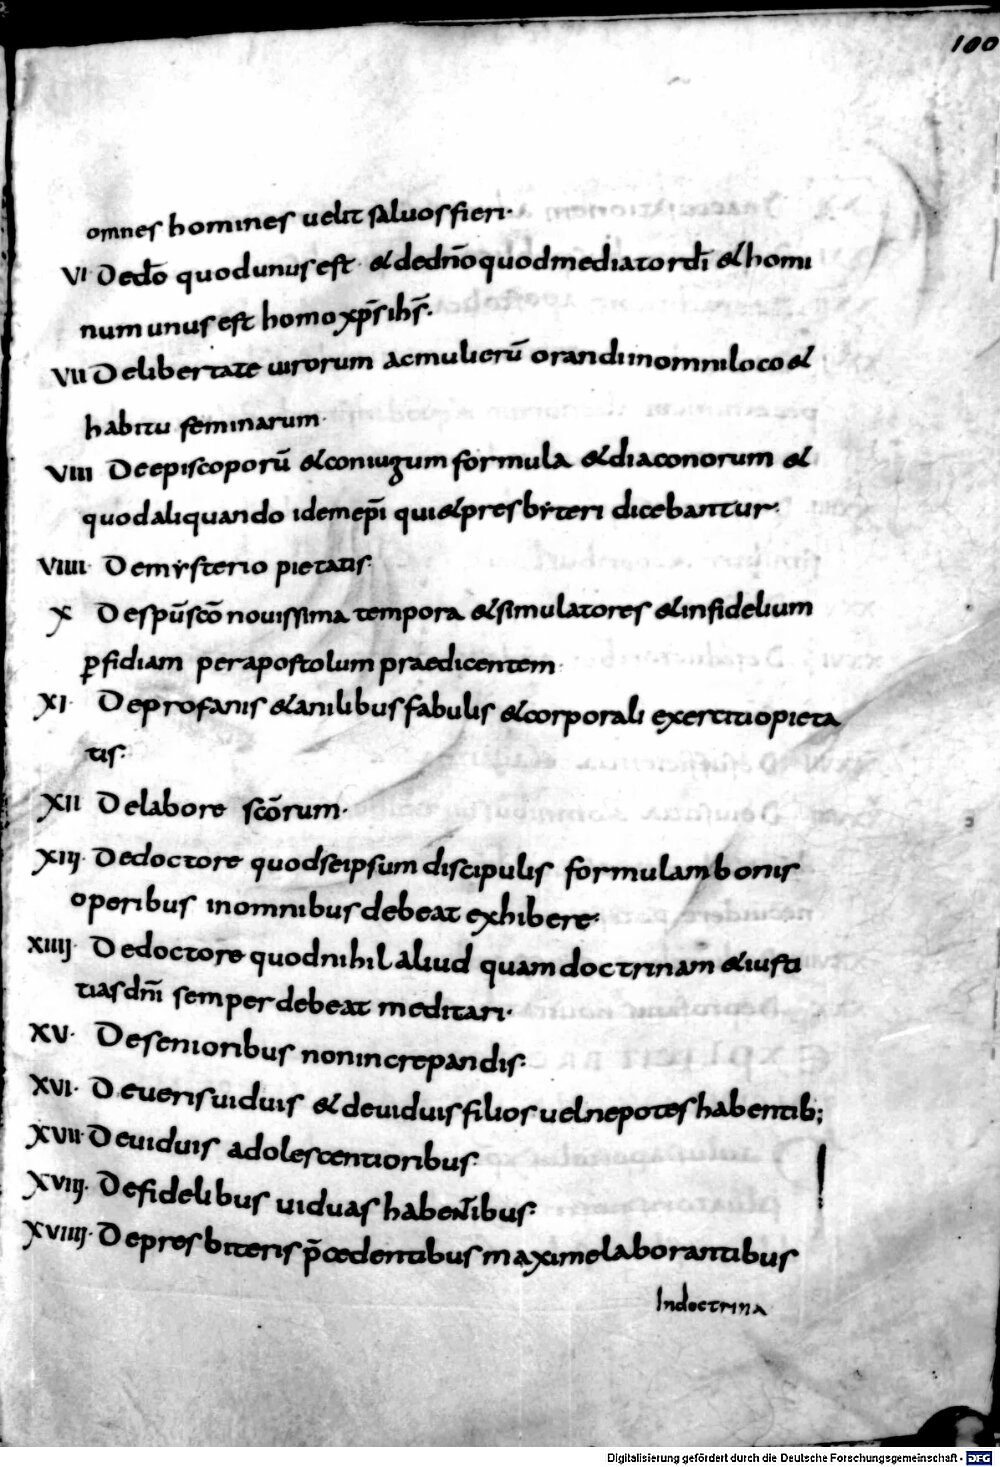 100
omnes homines uelit saluos fieri·
VI De dō quod unus est· et de dn̄o quod mediator dī et homi
num unus est homo xp̄s ih̄s·
VII De libertate uirorum ac mulierū orandi in omni loco et
habitu feminarum·
VIII De episcoporū et coniugum formula et diaconorum et
quod aliquando idem ep̄i qui et presbyteri dicebantur·
VIIII· De mysterio pietatis·
X De sp̄u sc̄o nouissima tempora et simulatores et infidelium
ꝑfidiam per apostolum praedicentem·
XI· De profanis et anilibus fabulis et corporali exercitio pieta
tis·
XII De labore sc̄orum·
XIIJ· De doctore quod se ipsum discipulis formulam bonis
operibus in omnibus debeat exhibere·
XIIIJ· De doctore quod nihil aliud quam doctrinam et iusti
tias dn̄i semper debeat meditari·
XV· De senioribus non increpandis·
XVI· De ueris uiduis et de uiduis filios uel nepotes habentib;
XVII· De uiduis adolescentioribus·
XVIIJ· De fidelibus uiduas habentibus·
XVIIIJ· De presbiteris p̄cedentibus maxime laborantibus
In doctrina
Digitalisierung gefördert durch die Deutsche Forschungsgemeinschaft - DFG